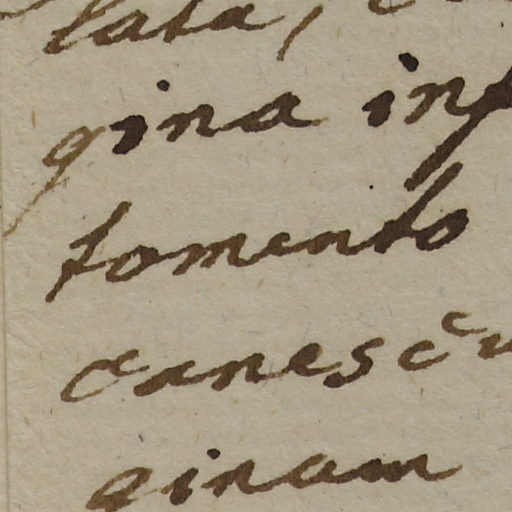 lata,
gina inf
tomento
canesce
ginam